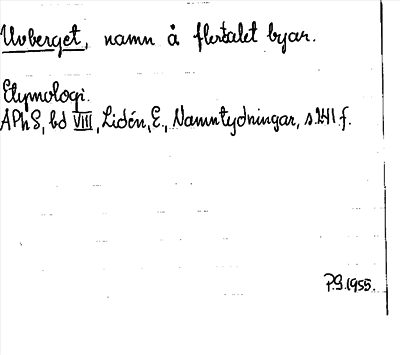 Uvberget, namn å flertalet byar.
Etymologi.
APhS, bd VIII, Lidén, E., Namntydningar, s. 241 f.
P.G. 1955.